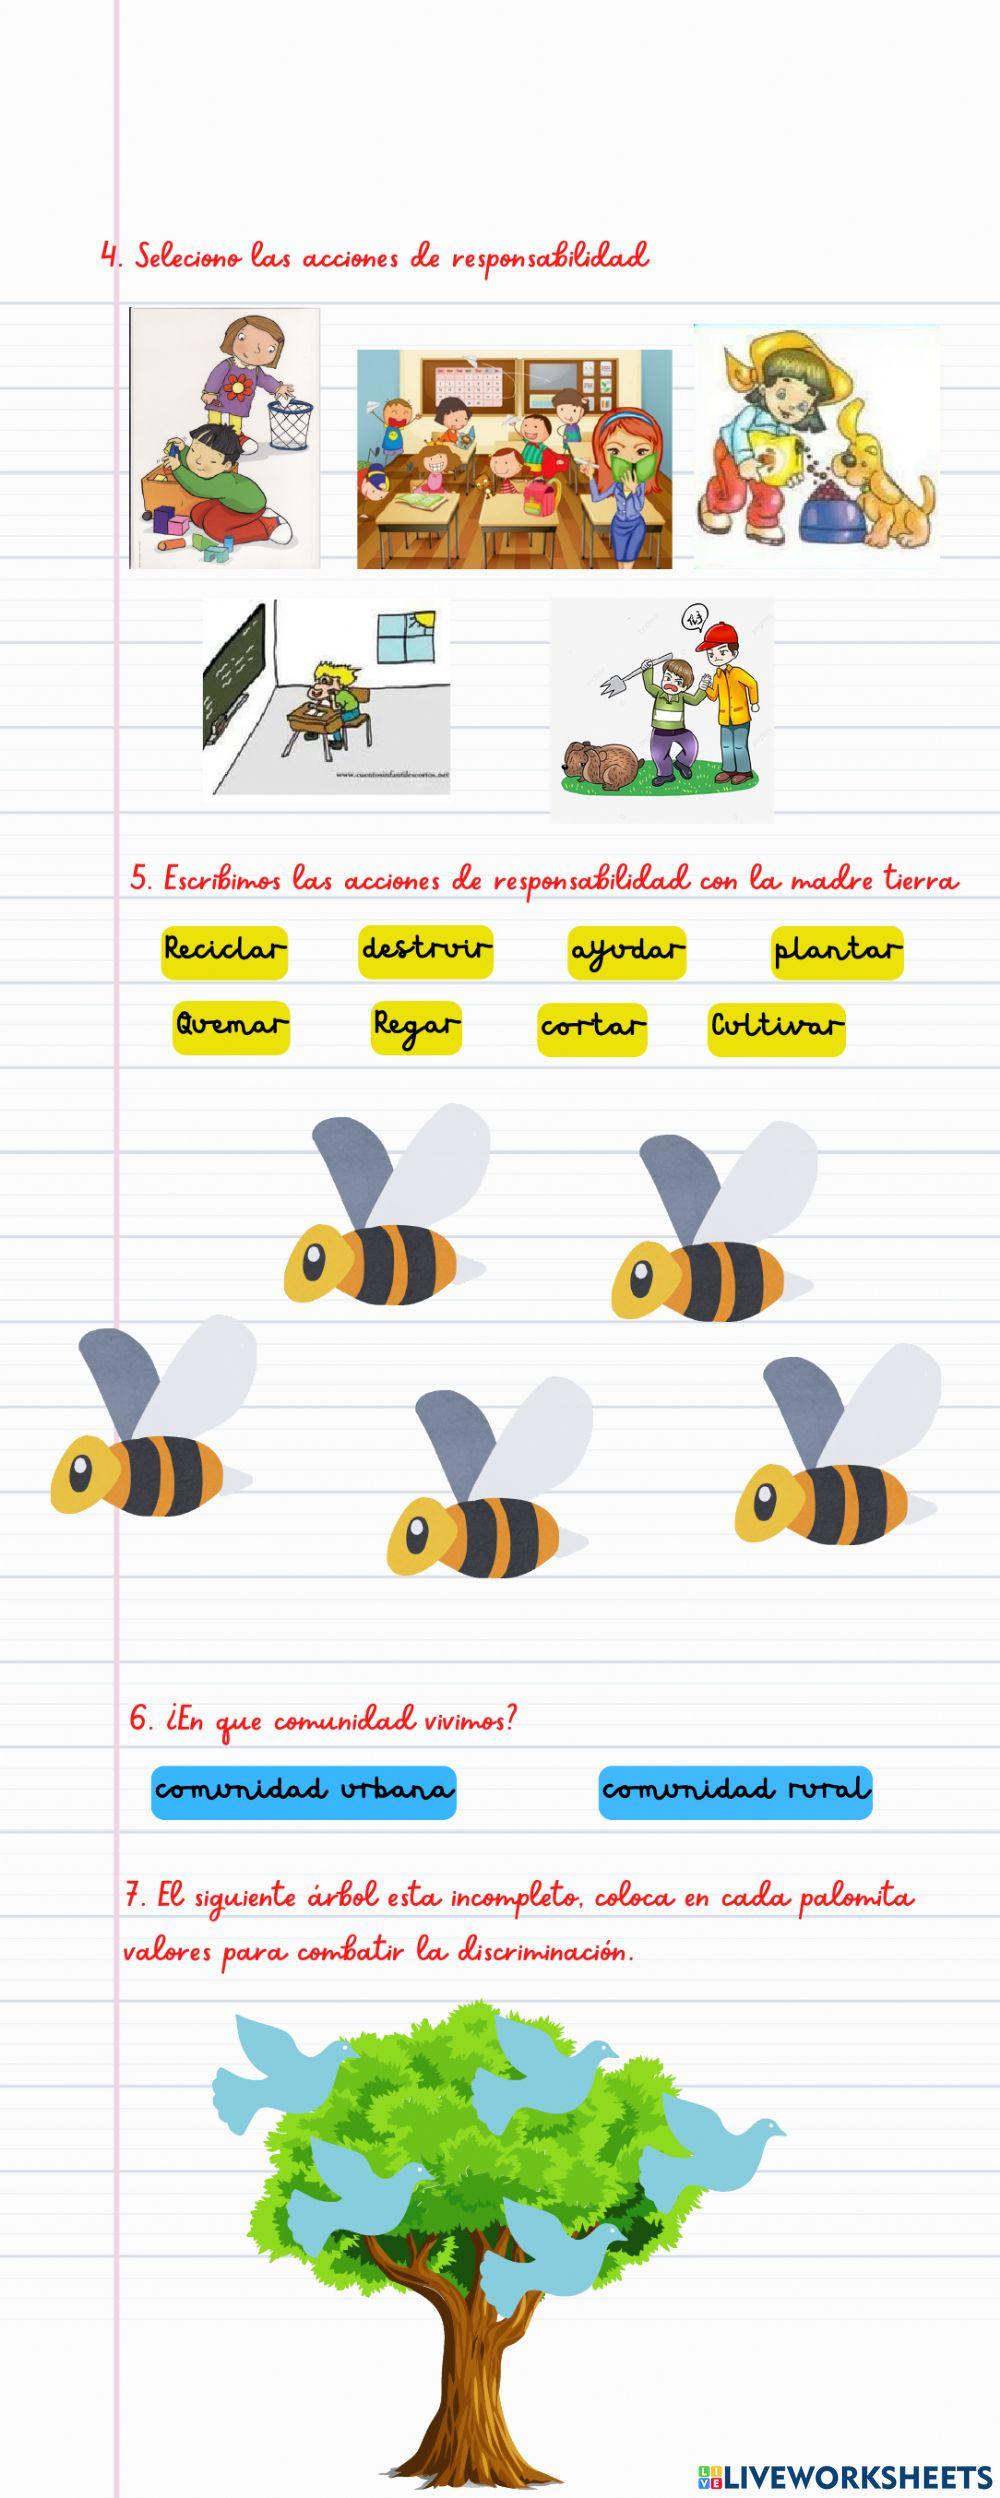 4. Seleciono las acciones de responsabilidad
www.cuentosinfantilescortos.net
5. Escribimos las acciones de responsabilidad con la madre tierra
Reciclar destruir ayudar plantar
Quemar Regar cortar Cultivar
6. ¿En que comunidad vivimos?
comunidad urbana comunidad rural
7. El siguiente árbol esta incompleto, coloca en cada palomita
valores para combatir la discriminación.
LIVEWORKSHEETS